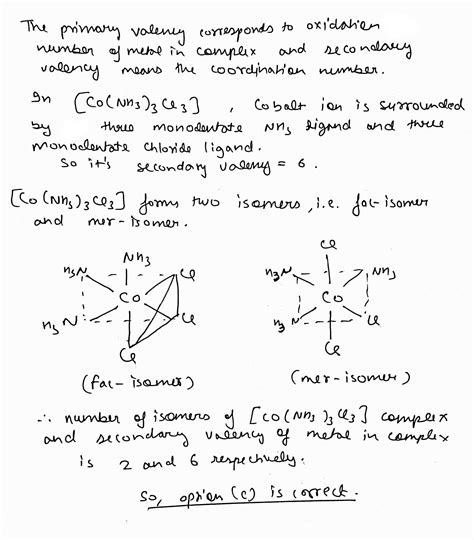 The primary valency corresponds to oxidation
number of metal in complex and secondary
valency means the coordination number.
In [Co(NH3)3Cl3], Cobalt ion is surrounded
by three monodentate NH3 ligand and three
monodentate chloride ligand.
So it's secondary valency = 6.
[Co(NH3)3Cl3] forms two isomers, i.e. fac-isomer
and mer-isomer.
NH3 Cl
H3N Cl H3N NH3
Co Co
H3N Cl H3N Cl
Cl Cl
(fac-isomer) (mer-isomer)
∴ number of isomers of [Co(NH3)3Cl3] complex
and secondary valency of metal in complex
is 2 and 6 respectively.
So, option (c) is correct.